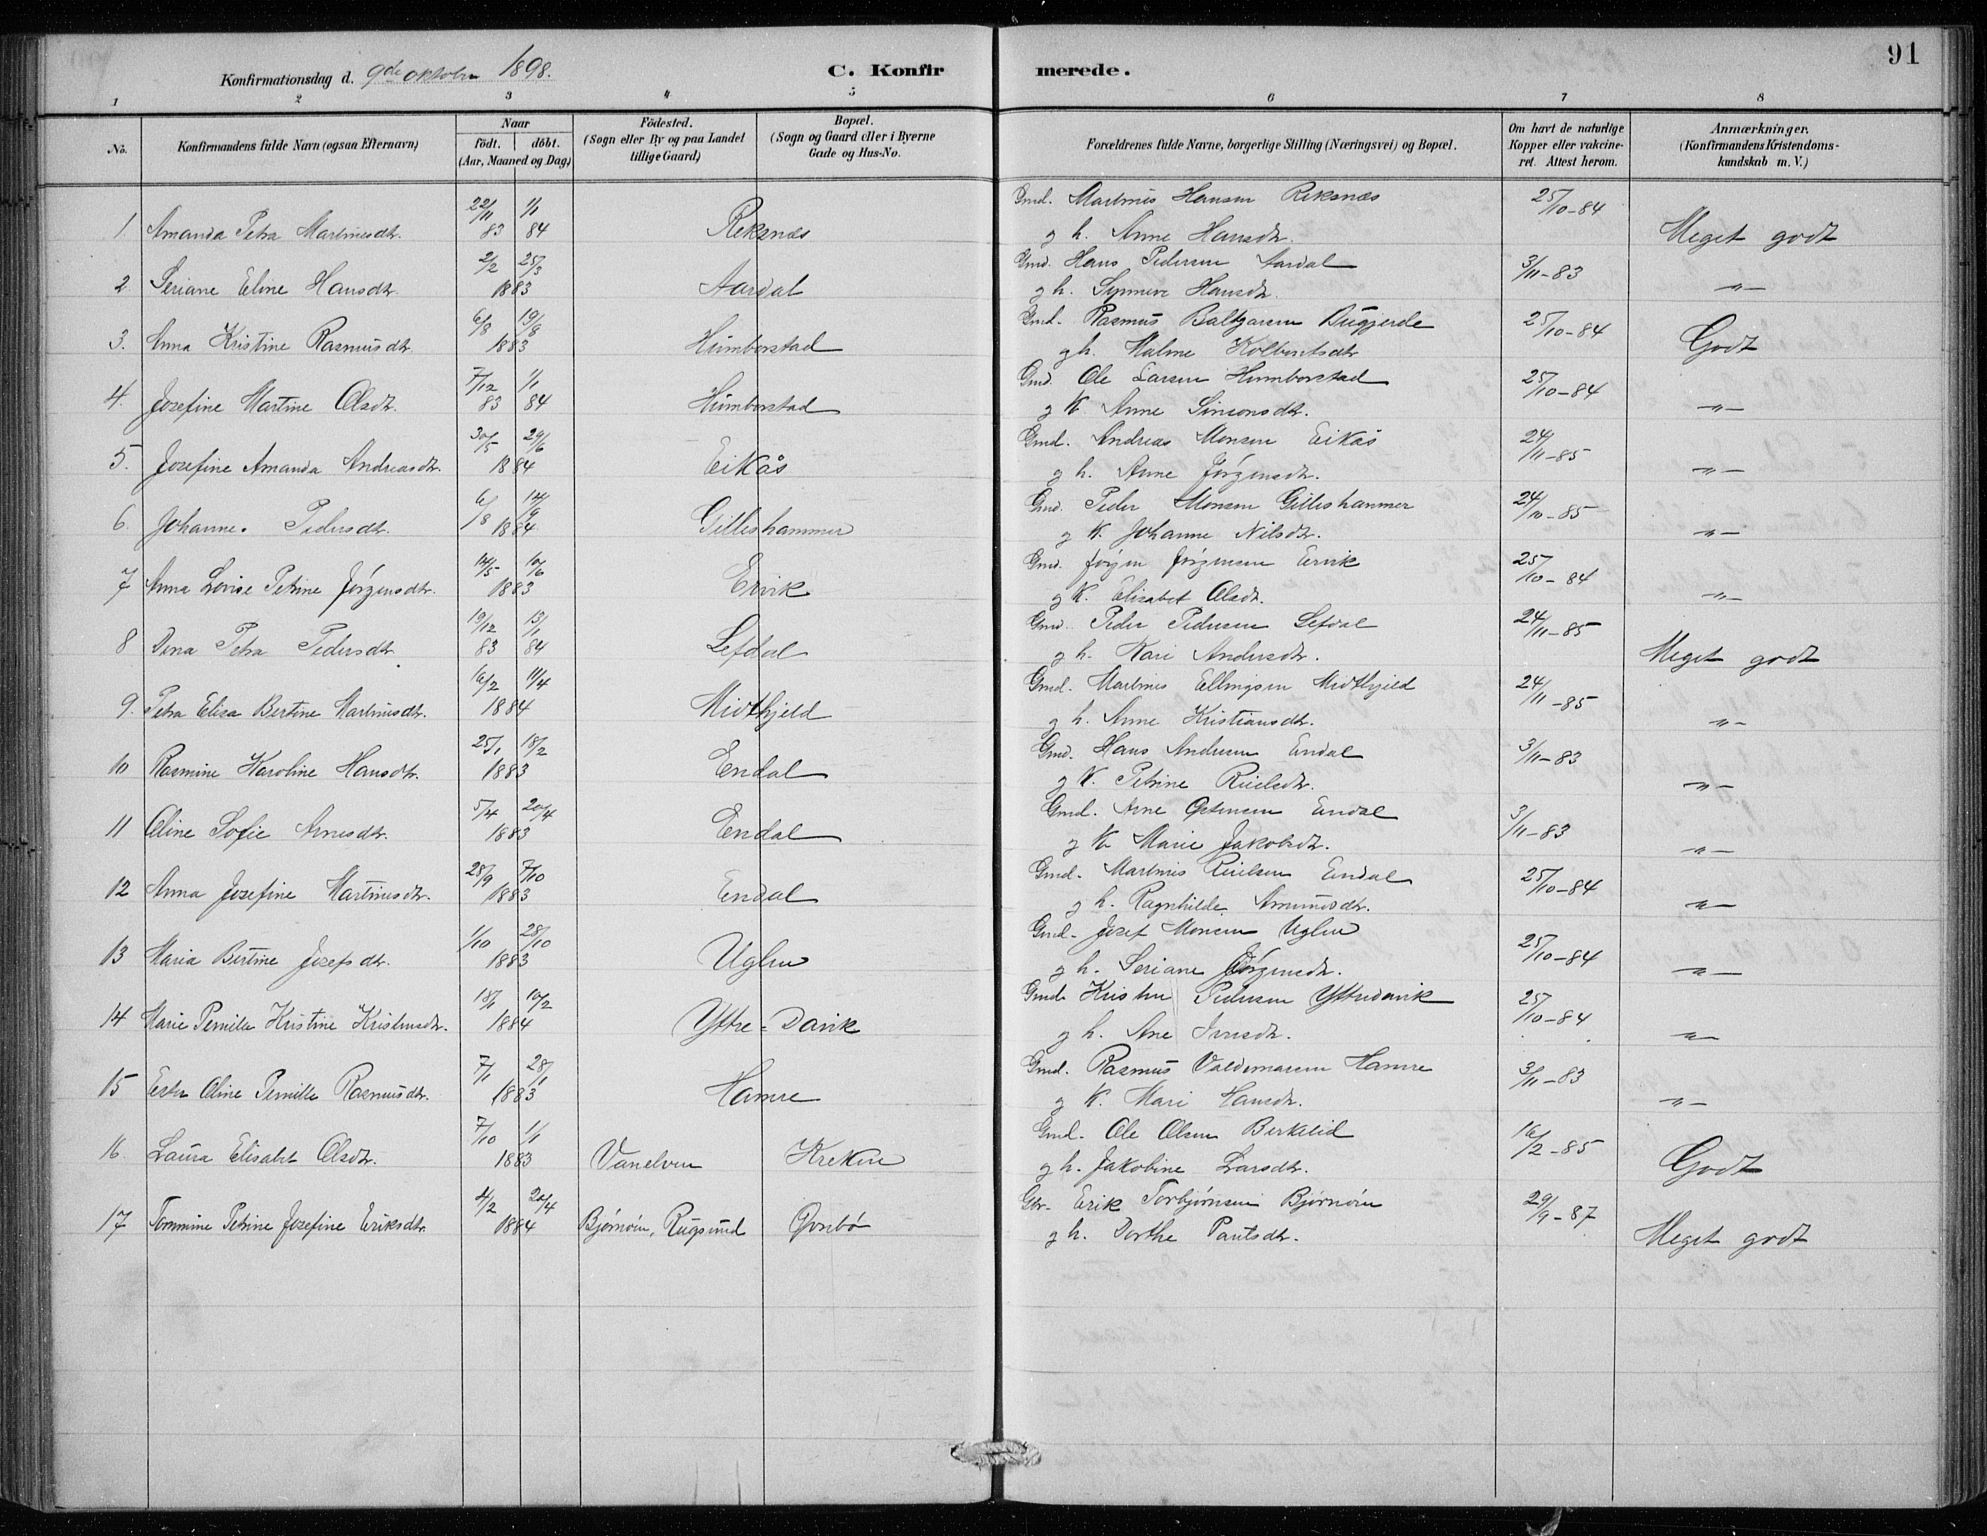 91
Konfirmationsdag d. 9de oktober 1898. C. Konfirmerede.
1 2 3 4 5 6 7 8
No. Konfirmandens fulde Navn (ogsaa Efternavn) Naar födt. döbt. (Aar, Maaned og Dag) Födested. (Sogn eller By og paa Landet tillige Gaard) Bopæl. (Sogn og Gaard eller i Byerne Gade og Hus-No. Forældrenes fulde Navne, borgerlige Stilling (Næringsvei) og Bopæl. Om havt de naturlige Kopper eller vakcineret. Attest herom. Anmærkninger. (Konfirmandens Kristendomskundskab m. V.)
22/11 1/1 Gmd. Martinus Hansen Reksnæs 25/10-84
1. Amanda Petra Martinusdtr. 83 84 Reksnæs g h. Anne Hansdtr. Meget godt
2/2 25/3 Gmd. Hans Pedersen Aardal 3/11-83
2. Seriane Eline Hansdtr. 1883 Aardal g h. Synneve Hansdtr. -"-
6/8 19/8 Gmd. Rasmus Baltzarsen Bugjerde 25/10-84
3. Anna Kristine Rasmusdtr. 1883 Humborstad g h. Malene Kolbentsdtr. Godt
7/12 1/1 Gmd. Ole Larsen Humborstad 25/10-84
4. Josefine Martine Olsdtr. 83 84 Humborstad g K Anne Simonsdtr. -"-
30/5 29/6 Gmd. Andreas Monsen Eikås 24/11-85
5. Josefine Amanda Andreasdtr. 1884 Eikås g h. Anne Jørgensdtr. -"-
6/8 14/9 Gmd. Peder Monsen Gilleshammer 24/10-85
6. Johanne. Pedersdtr. 1884. Gilleshammer g K. Johanne Nilsdtr. -"-
14/5 10/6 Gmd. Jørgen Jørgensen Ervik 25/10-84
7 Anna Lovise Petrine Jørgensdtr. 1883 Ervik g K. Elisabet Olsdtr. -"-
19/12 13/1 Gmd. Peder Pedersen Lefdal 24/11-85
8 Dina Petra Pedersdtr. 83 84 Lefdal g h. Kari Andersdtr. Meget godt
16/2 11/4 Gmd. Martinus Ellingsen Midthjeld 24/11-85
9. Petra Elisa Bertine Martinusdtr. 1884 Midthjeld g h. Anne Kristiansdtr. -"-
25/1 18/2 Gmd. Hans Andersen Endal 3/11-83
10 Rasmine Karoline Hansdtr. 1883 Endal g K. Petrine Rieilsdtr. -"-
5/4 20/4 Gmd. Arne Ostensen Endal 3/11-83
11 Oline Sofie Arnesdtr. 1883 Endal g K Marie Jakobsdtr. -"-
28/9 7/10 Gmd. Martinus Rieilsen Endal 25/10-84
12 Anna Josefine Martinusdtr. 1883 Endal g h. Ragnhilde Amundsdtr. -"-
1/10 28/10 Gmd. Josef Monsen Uglen 25/10-84
13 Maria Bertine Josefsdtr. 1883 Uglen g h. Seriane Jørgensdtr. -"-
18/1 10/2 Gmd. Kristen Pedersen Yttredavik 25/10-84
14 Marie Pernille Kristine Kristensdtr. 1884 Yttre-Davik g h. Ane Iversdtr. -"-
7/1 28/1 Gmd. Rasmus Valdemarsen Hamre 3/11-83
15 Ester Oline Pernille Rasmusdtr. 1883 Hamre g K. Mari Hansdtr. -"-
7/10 1/1 Gmd. Ole Olsen Berklid 16/2-85
16. Laura Elisabet Olsdtr. 1883 Vanelven Kreken g h. Jakobine Larsdtr. Godt
4/2 20/4 Gbr. Erik Torbjørnsen Bjørnøen 29/9-87
17 Tommine Petrine Josefine Eriksdtr. 1884 Bjørnøen, Rugsund Ovnbø g h. Dorthe Paulsdtr. Meget godt